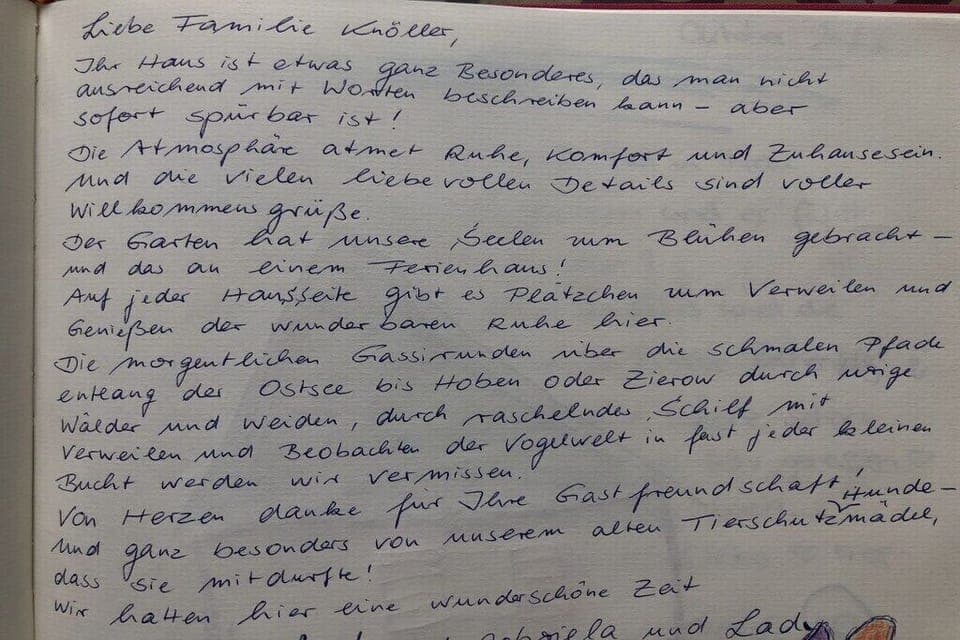 Liebe Familie Knöller,
Ihr Haus ist etwas ganz Besonderes, das man nicht
ausreichend mit Worten beschreiben kann – aber
sofort spürbar ist!
Die Atmosphäre atmet Ruhe, Komfort und Zuhausesein.
Und die vielen liebevollen Details sind voller
Willkommensgrüße.
Der Garten hat unsere Seelen zum Blühen gebracht –
und das an einem Ferienhaus!
Auf jeder Hausseite gibt es Plätzchen zum Verweilen und
Genießen der wunderbaren Ruhe hier.
Die morgentlichen Gassirunden über die schmalen Pfade
entlang der Ostsee bis Hoben oder Zierow durch urige
Wälder und Weiden, durch raschelndes Schilf mit
Verweilen und Beobachten der Vogelwelt in fast jeder kleinen
Bucht werden wir vermissen.
Von Herzen danke für Ihre Gastfreundschaft!
Und ganz besonders von unserem alten Tierschutz Hunde-mädel,
dass sie mitdurfte!
Wir hatten hier eine wunderschöne Zeit
Gabriela und Lady